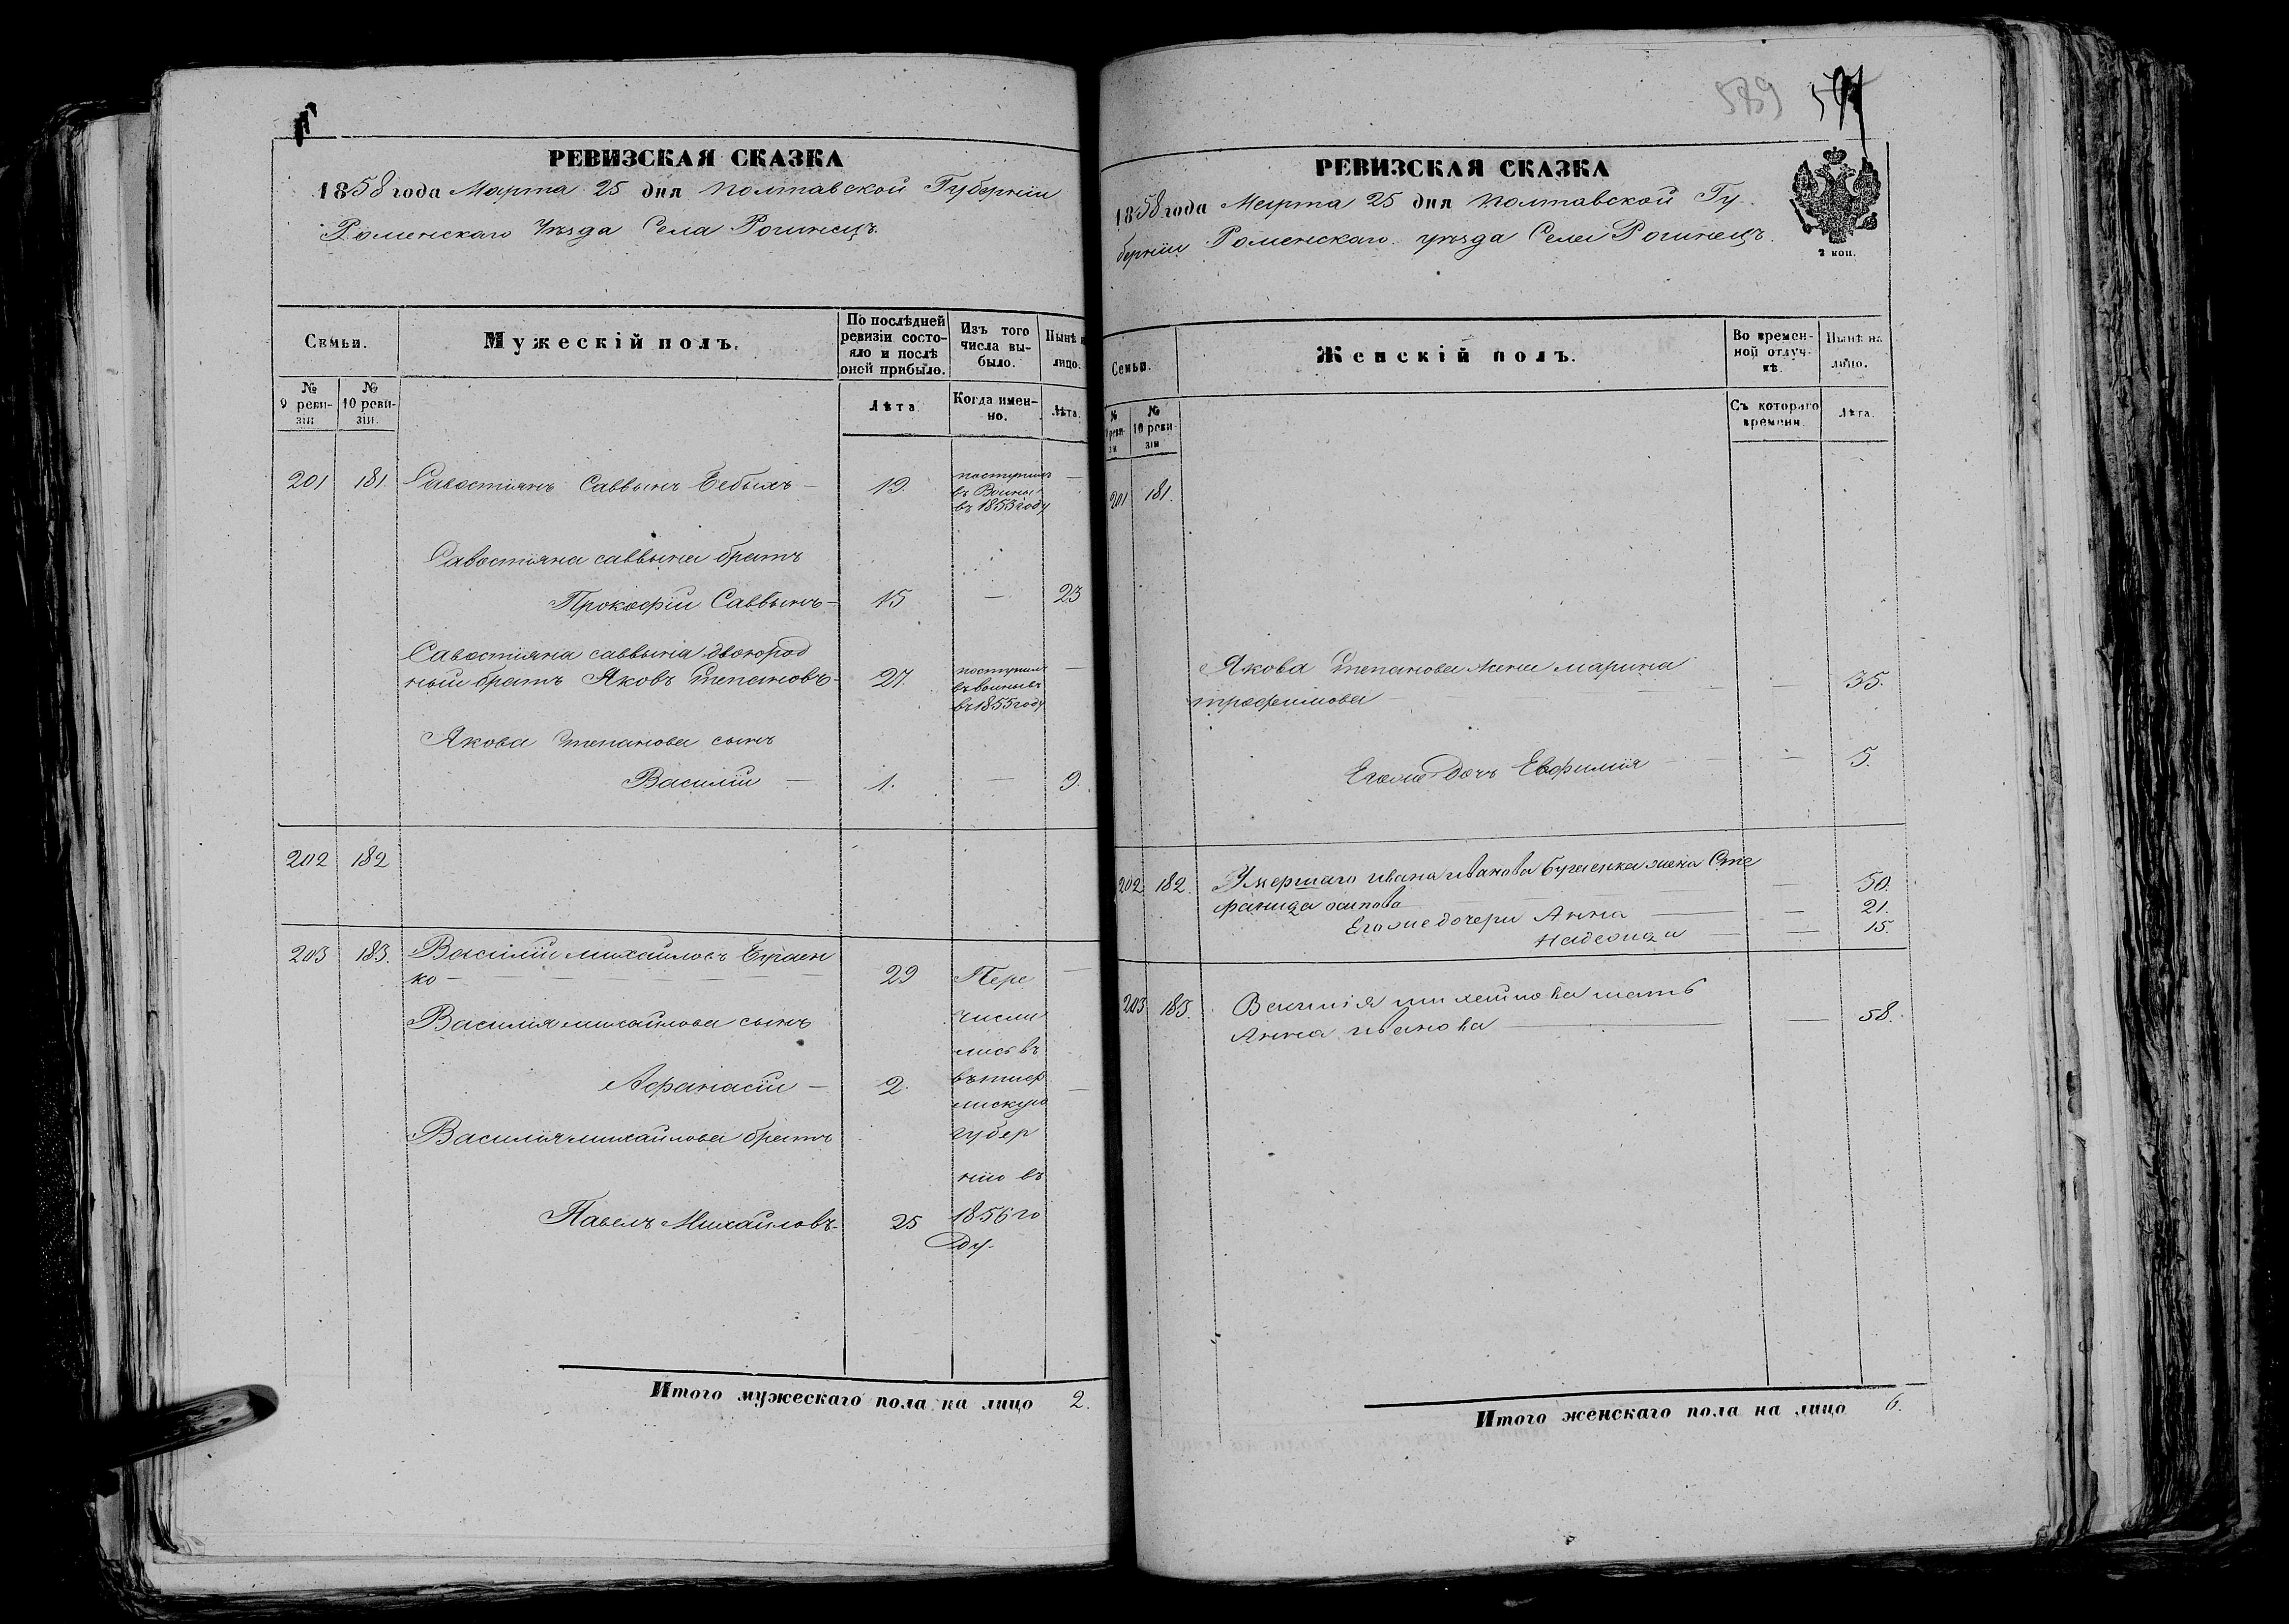 РЕВИЗСКАЯ СКАЗКА
1858 года Марта 25 дня Полтавской Губернiи
Роменскаго Уѣзда Села Рогинецъ.
Семьи.
Мужескій полъ.
По послѣдней ревизіи состояло и послѣ оной прибыло.
Изъ того числа выбыло.
Нынѣ н
лицо.
№ 9 ревизіи
№ 10 ревизіи.
Лѣта
Когда именно.
Лѣта.
201 181 Савостіянъ Саввинъ 19. поступилъ
въ
въ 1853 году
Савостіяна саввина братъ
Прокофій Саввинъ 15 — 23
Савостіяна саввина двоюрод
ный братъ Яковъ Степановъ 27. поступилъ
въ 1855 году
Якова Степанова сынъ
Василій — 1. — 9.
202 182
203 183. Василій Михайловъ
ко — 29 Пере
Василія михайлова сынъ числи
лись въ
Афанасій — 2.
Василія михайлова братъ губер
нію въ
Павелъ Михайловъ 25 1856 го
ду.
Итого мужескаго пола на лицо 2.
589
РЕВИЗСКАЯ СКАЗКА
1858 года Марта 25 дня Полтавской Гу
берніи Роменскаго уѣзда Села Рогинецъ.
2 коп.
Семьи.
Женскій полъ.
Во временной отлучкѣ.
Нынѣ на лицо.
№ 9 ревизіи
№ 10 ревизіи
Съ котораго времени.
Лѣта.
201 181.
Якова Степанова жена марина
трофимова — 35.
Егоже дочь Евфимія — 5.
202 182. Умершаго ивана иванова жена Сте
фанида осипова — 50.
Егоже дочери Анна — 21.
Надежда — 15.
203 183. Василія михайлова мать
Анна иванова — 58.
Итого женскаго пола на лицо 6.